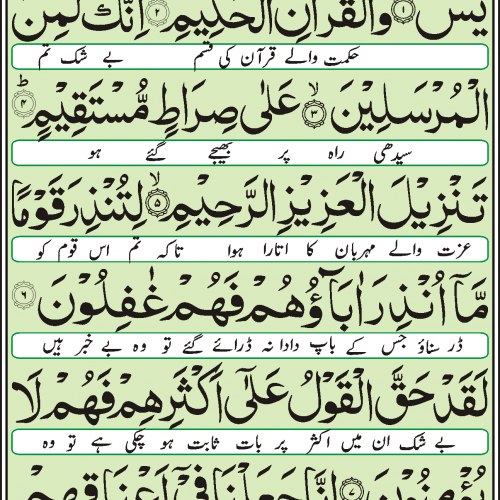 يٰسٓ ﴿١﴾ وَالْقُرْاٰنِ الْحَكِيْمِ ﴿٢﴾ اِنَّكَ لَمِنَ
حکمت والے قرآن کی قسم بے شک تم
الْمُرْسَلِيْنَ ﴿٣﴾ عَلٰى صِرَاطٍ مُّسْتَقِيْمٍ ﴿٤﴾
سیدھی راہ پر بھیجے گئے ہو
تَنْزِيْلَ الْعَزِيْزِ الرَّحِيْمِ ﴿٥﴾ لِتُنْذِرَ قَوْمًا
عزت والے مہربان کا اتارا ہوا تاکہ تم اس قوم کو
مَّاۤ اُنْذِرَ اٰبَآؤُهُمْ فَهُمْ غٰفِلُوْنَ ﴿٦﴾
ڈر سناؤ جس کے باپ دادا نہ ڈرائے گئے تو وہ بے خبر ہیں
لَقَدْ حَقَّ الْقَوْلُ عَلٰۤى اَكْثَرِهِمْ فَهُمْ لَا
بے شک ان میں اکثر پر بات ثابت ہو چکی ہے تو وہ
يُؤْمِنُوْنَ ﴿٧﴾ اِنَّا جَعَلْنَا فِيْۤ اَعْنَاقِهِمْ